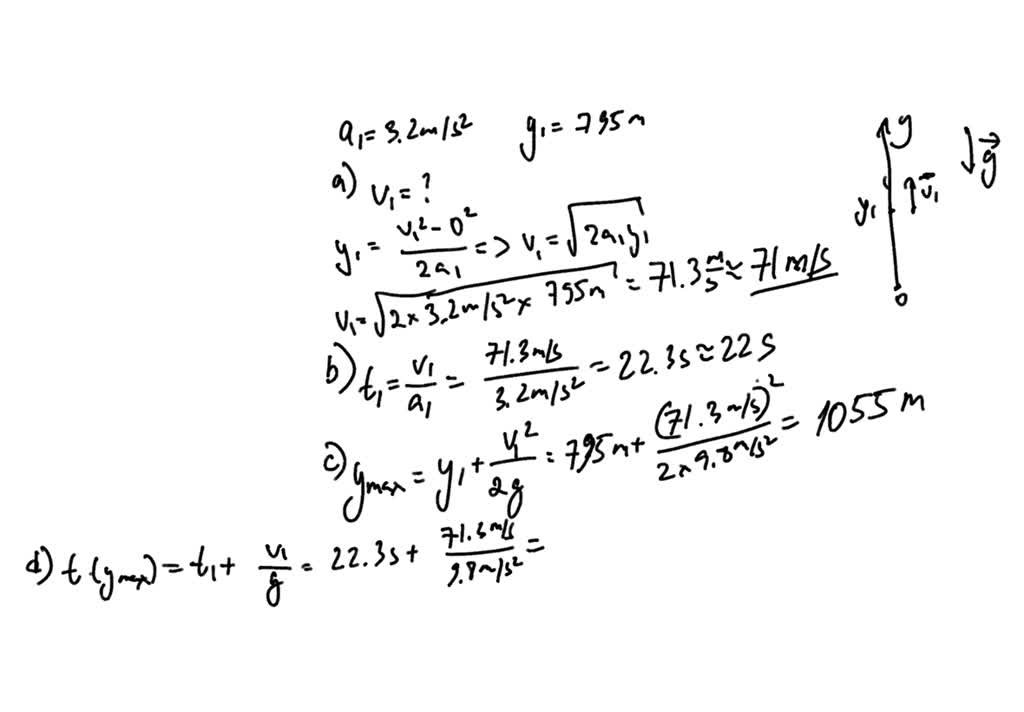 a₁ = 3.2 m/s² y₁ = 795 m
a) v₁ = ?
y₁ = (v₁² - 0²)/(2a₁) => v₁ = √(2a₁y₁)
v₁ = √(2 × 3.2 m/s² × 795 m) = 71.3 m/s ≈ 71 m/s
b) t₁ = v₁/a₁ = (71.3 m/s)/(3.2 m/s²) = 22.3 s ≈ 22 s
c) y_max = y₁ + v₁²/(2g) = 795 m + (71.3 m/s)²/(2 × 9.8 m/s²) = 1055 m
d) t(y_max) = t₁ + v₁/g = 22.3 s + (71.3 m/s)/(9.8 m/s²) =
y
g⃗
y₁
v⃗₁
0